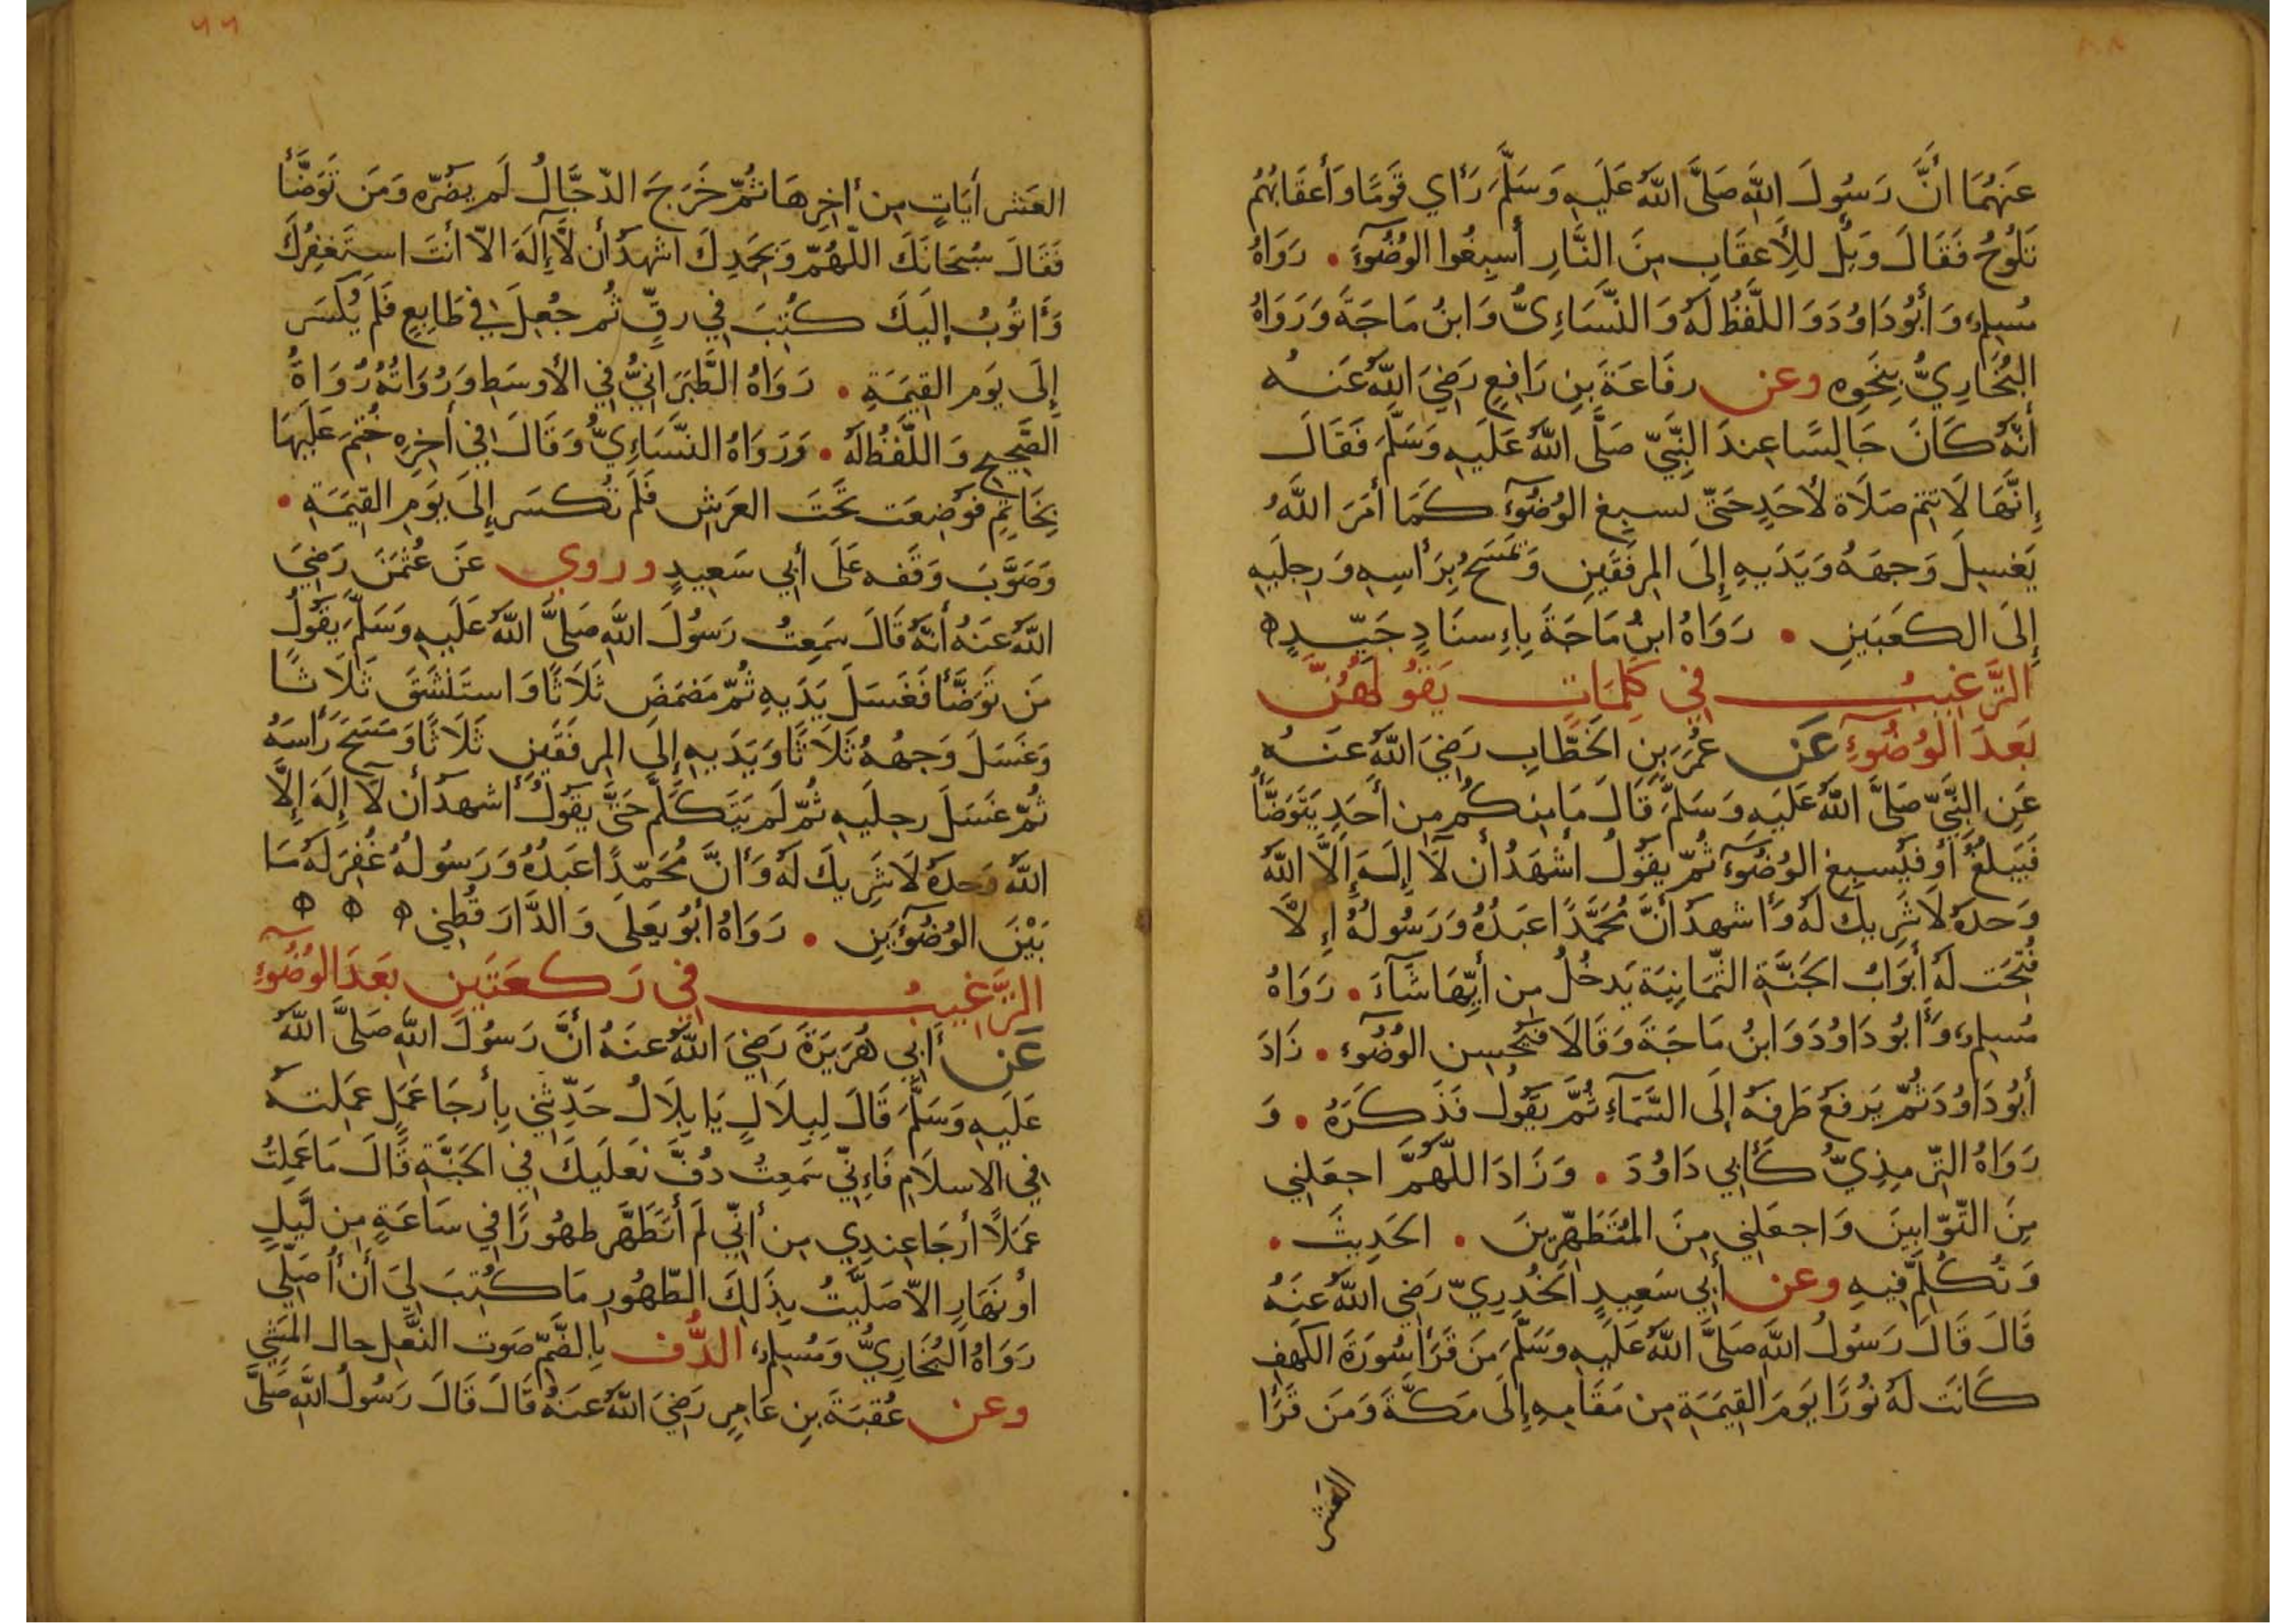 عَنهُمَا انَّ رَسُولَ اللَّهِ صَلَّى اللَّهُ عَلَيهِ وَسَلَّمَ رَأي قَومًا وَأَعقَابُهُم
تَلُوحُ فَقَالَ وَيلٌ لِلأَعقَابِ مِنَ النَّارِ أَسبِغُوا الوُضُوءَ • رَوَاهُ
مُسلِم وَأبُو دَاوُدَ وَاللَّفظُ لَهُ وَالنَّسَاءِيُّ وَابنُ مَاجَةَ وَرَوَاهُ
البُخَارِيُّ بِنَحوِهِ وعن رِفَاعَةَ بنِ رَافِعٍ رَضِيَ اللَّهُ عَنهُ
أَنَّهُ كَانَ جَالِسًا عِندَ النَّبِيّ صَلَّى اللَّهُ عَلَيهِ وَسَلَّمَ فَقَالَ
إِنَّهَا لَا تتِم صَلَاة لأَحَدٍ حَتّى لسبِغ الوُضُوءَ كَمَا أَمَرَ اللَّهُ
يَغسِلَ وَجهَهُ وَيَدَيهِ إِلَى المِرفَقَينِ وَتَمسَحُ بِرَأسِهِ وَرِجلَيهِ
إِلَى الكَعبَينِ • رَوَاهُ ابنُ مَاجَةَ بِاءِسنَادٍ جَيّدٍ
التَّرغِيبُ فِي كَلِمَاتٍ يَقُولُهُنَّ
بَعدَ الوُضُوءِ عَن عُمَرَ بنِ الخَطَّابِ رَضِيَ اللَّهُ عَنهُ
عَنِ النَّبِيّ صَلَّى اللَّهُ عَلَيهِ وَسَلَّمَ قَالَ مَا مِنكُم مِن أَحَدٍ يَتَوَضَّأُ
فَيَبلغُ أو فَيُسبِغ الوُضُوءَ ثُمّ يقُولُ أَشهَدُ أن لَا إِلَهَ إِلَّا اللَّهُ
وَحدَهُ لَا شَرِيكَ لَهُ وَأَشهدُ أنَّ مُحَمَّدًا عَبدُهُ وَرَسُولُهُ إِلَّا
فُتِحَت لَهُ أَبوَابُ الجَنَّةِ الثّمَانِيَة يَدخُلُ مِن أَيّهَا شَآءَ • رَوَاهُ
مُسلِم وَأَبُو دَاوُدَ وَابنُ مَاجَةَ وَقَالَا فَيُحسِن الوُضُوءَ • زَادَ
أَبُو دَاوُدَ ثُمّ يَرفَعُ طَرفَهُ إِلَى السَّمَآءِ ثُمَّ يَقُولُ فَذَكَرَهُ • وَ
رَوَاهُ التّرمِذِيُّ كَأَبِي دَاوُدَ • وَزَادَ اللَّهُمَّ اجعَلنِي
مِنَ التّوّابِينَ وَاجعَلنِي مِنَ المُتَطَهّرِينَ • الحَدِيثَ •
وَتُكُلّمَ فِيهِ وعن أَبِي سَعِيدٍ الخُدرِيّ رَضِي اللَّهُ عَنهُ
قَالَ قَالَ رَسُولُ اللَّهِ صَلَّى اللَّهُ عَلَيهِ وَسَلَّمَ مَن قَرَأ سُورَةَ الكَهفِ
كَانَت لَهُ نُورًا يَومَ القِيمَةِ مِن مَقَامِهِ إِلَى مَكَّةَ وَمَن قَرَأ
العشر
٩٩
العَشر أَيَاتٍ مِن أخِرِهَا ثُمّ خَرَجَ الدّجَّالُ لَم يضُرّه وَمَن تَوَضَّأَ
فَقَالَ سُبحَانَكَ اللّهُمّ وَبِحَمدِكَ اشهَدُ أن لَّا إِلَهَ الّا أنتَ استَغفِرُكَ
وَأتُوبُ إِلَيكَ كُتِبَ فِي رقٍّ ثُم جُعِلَ فِي طَابِعٍ فَلَم يُكسَر
إِلَى يَومِ القِيمَةِ • رَوَاهُ الطَّبَرَانِيُّ فِي الأوسَطِ وَرُوَاتُهُ رُوَاةُ
الصَّحِيحِ وَاللَّفظُ لَهُ • وَرَوَاهُ النّسَاءِيُّ وَقَالَ فِي أخِرِهِ خُتِمَ عَلَيهَا
بِخَاتِمٍ فَوضِعَت تَحتَ العَرشِ فَلَم تُكسَر إِلَى يَومِ القِيمَةِ •
وَصَوَّبَ وَقفَه عَلَى أَبِي سَعِيدٍ وروي عَن عُثمَنَ رَضِيَ
اللَّهُ عَنهُ أَنَّهُ قَالَ سَمِعتُ رَسُولَ اللَّهِ صَلَّى اللَّهُ عَلَيهِ وَسَلَّمَ يَقُولُ
مَن تَوَضَّأ فَغَسَلَ يَدَيهِ ثُمّ مَضمَضَ ثَلَاثًا وَاستَنشَقَ ثَلَاثًا
وَغَسَلَ وَجهُهُ ثَلَاثًا وَيَدَيهِ إِلَى المِرفَقَينِ ثَلَاثًا وَمَسَحَ رَأسَهُ
ثُمّ غَسَلَ رِجلَيهِ ثُمّ لَم يَتَكَلَّم حَتَّى يَقُولُ أَشهدُ أن لَا إِلَهَ إِلَّا
اللَّهُ وَحدَهُ لَا شَرِيكَ لَهُ وَأَنَّ مُحَمّدًا عَبدُهُ وَرَسُولُهُ غُفِرَ لَهُ مَا
بَيْنَ الوُضُوءَينِ • رَوَاهُ أَبُو يَعلَى وَالدَّارَقُطنِي
التَّرغِيبُ فِي رَكعَتَينِ بَعدَ الوُضُوءِ
عَن أَبِي هُرَيرَةَ رَضِيَ اللَّهُ عَنهُ أَنَّ رَسُولَ اللَّهِ صَلَّى اللَّهُ
عَلَيهِ وَسَلَّمَ قَالَ لِبِلَالٍ يَا بِلَالُ حَدّثنِي بِأرجَا عَمَلٍ عَمِلتَهُ
فِي الاسلَامِ فَاءِنّي سَمِعتُ دُفَّ نَعلَيكَ فِي الجَنَّةِ قَالَ مَا عَمِلتُ
عَمَلًا أَرجَا عِندِي مِن أَنّي لَم أَتَطَهَّر طهُورًا فِي سَاعَةٍ مِن لَّيلٍ
أو نَهَارٍ الّا صَلَّيتُ بِذَلِكَ الطّهُورِ مَا كُتِبَ لِيَ أَن أُصَلّي
رَوَاهُ البُخَارِيُّ وَمُسلِم الدُّف بِالضَّمّ صَوت النَّعلِ حال المَشي
وعن عُقبَةَ بنِ عَامِرٍ رَضِيَ اللَّهُ عَنهُ قَالَ قَالَ رَسُولُ اللَّهِ صَلَّى